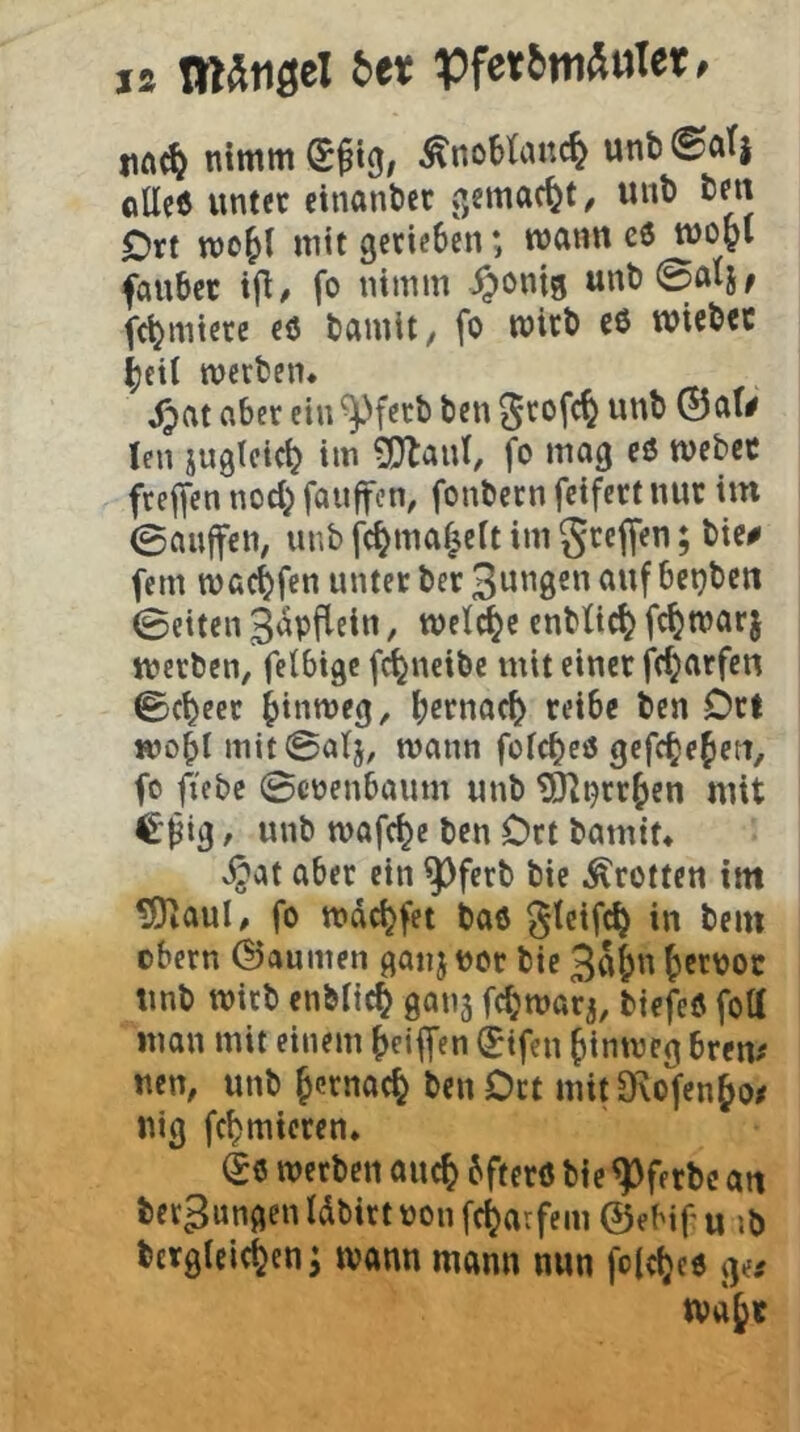 12 Mängel der Pferdmäuler,
nach nimm Eßig, Knoblauch und Salz
alles unter einander gemacht, und den
Ort wohl mit gerieben; wann es wohl
sauber ist, so nimm Honig und Salz,
schmiere es damit, so wird es wieder
heil werden.
Hat aber ein Pferd den Frosch und Gal-
len zugleich im Maul, so mag es weder
fressen noch sauffen, sondern seifert nur im
Sauffen, und schmahelt im Fressen; die-
sem wachsen unter der Zungen auf beyden
Seiten Zäpflein, welche endlich schwarz
werden, selbige schneide mit einer scharfen
Scheer hinweg, hernach reibe den Ort
wohl mit Salz, wann solches geschehen,
so siede Sevenbaum und Myrrhen mit
Eßig, und wasche den Ort damit.
Hat aber ein Pferd die Krotten im
Maul, so wächset das Fleisch in dem
obern Gaumen ganz vor die Zähn hervor
und wird endlich ganz schwarz, dieses soll
man mit einem heissen Eisen hinweg bren-
nen, und hernach den Ort mit Rosenho-
nig schmieren.
Es werden auch öfters die Pferde an
der Zungen lädirt von scharfem Gebiß und
dergleichen; wann mann nun solches ge-
wahr